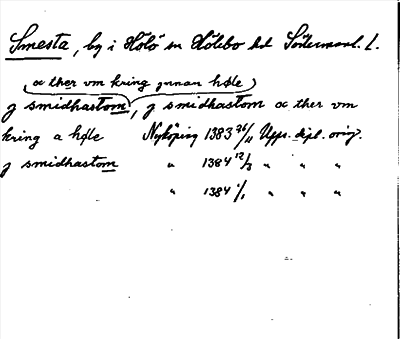 Smesta, by i Hölö sn Hölebo hd Södermanl. l.
oc ther vm kring innan høle
j smidhastom, j smidhastom oc ther vm
kring a høle Nyköping 1383 26/11 Upps. dipl. orig.
j smidhastom " 1384 12/3 " " "
" 1384 1/1 " " "